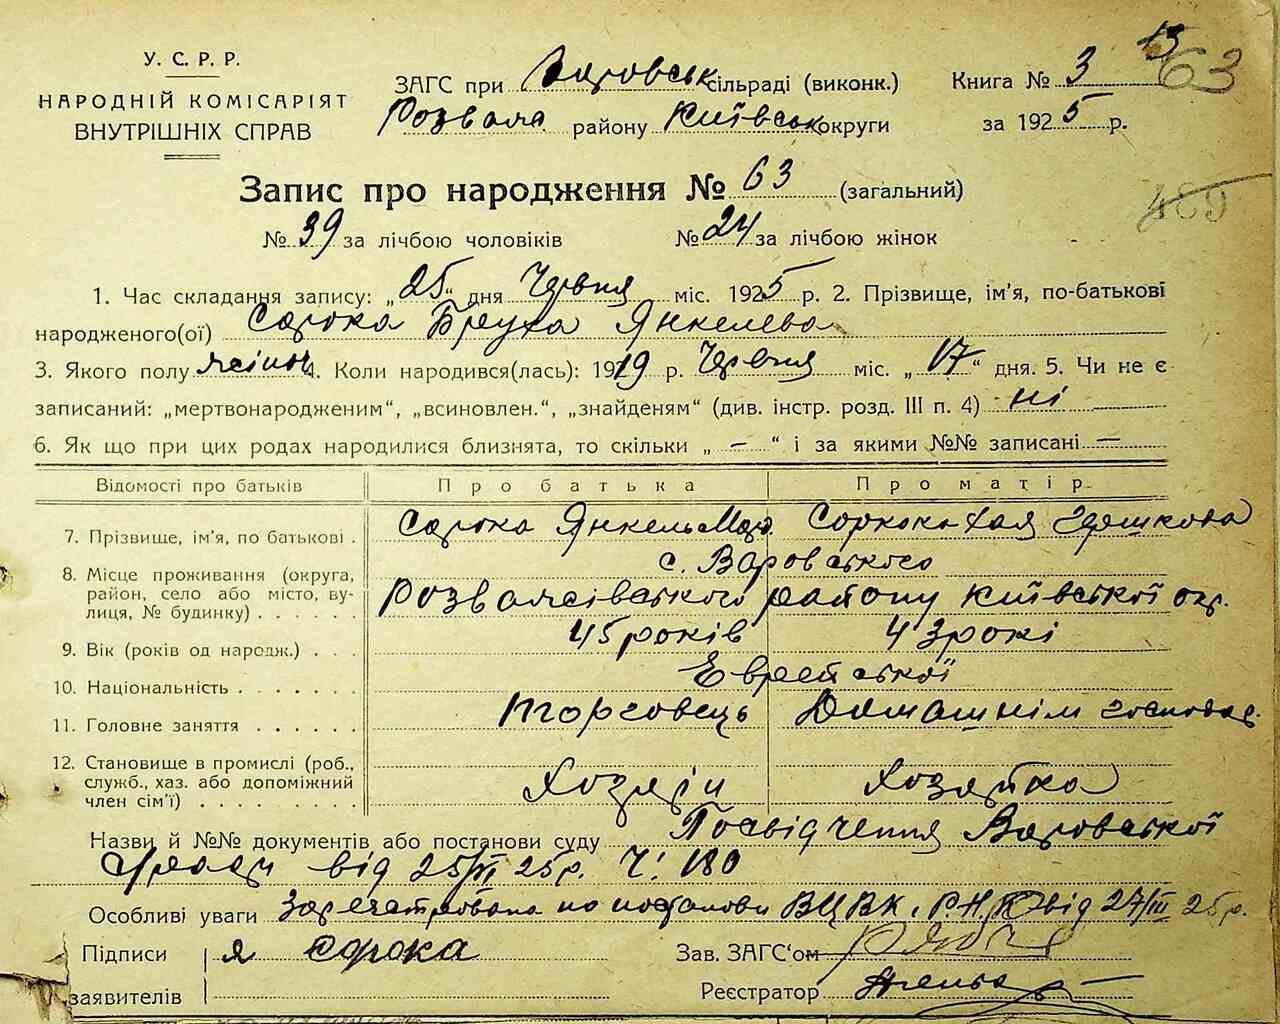 У. С. Р. Р.
НАРОДНІЙ КОМІСАРІЯТ
ВНУТРІШНІХ СПРАВ
ЗАГС при Варовськ сільраді (виконк.)
Розважа району Київськ округи
Книга № 3
13
63
за 1925 р.
Запис про народження № 63 (загальний)
489
№ 39 за лічбою чоловіків № 24 за лічбою жінок
1. Час складання запису: „25“ дня Червня міс. 1925 р. 2. Прізвище, ім'я, по-батькові
народженого(ої) Сорока Бруха Янкелева
3. Якого полу жіноч 4. Коли народився(лась): 1919 р. Червня міс. „17“ дня. 5. Чи не є
записаний: „мертвонародженим“, „всиновлен.“, „знайденям“ (див. інстр. розд. III п. 4) ні
6. Як що при цих родах народилися близнята, то скільки „ – “ і за якими №№ записані –
Відомості про батьків Про батька Про матір
7. Прізвище, ім'я, по батькові . Сорока Янкель Сорока Хая
8. Місце проживання (округа, район, село або місто, вулиця, № будинку) . . . . . . с. Варовського
Розважівського району Київської окр.
9. Вік (років од народж.) . . . 45 років 43 рокі
10. Національність . . . . . . . Еврейської
11. Головне заняття . . . . . . Торговець Домашнім господар.
12. Становище в промислі (роб., служб., хаз. або допоміжний член сім'ї) . . . . . . . . Хозяін Хозяйка
Назви й №№ документів або постанови суду Посвідчення Варовської
с/ради від 25/VI 25р. Ч. 180
Особливі уваги Зареєстрована по постанови ВЦВК і Р.Н.К від 27/III 25р.
Підписи я Сорока
заявителів
Зав. ЗАГС'ом
Реєстратор